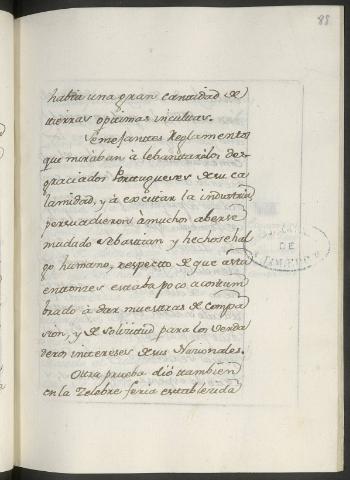 88
habia una gran cantidad de
tierras optimas incultas.
Semejantes Reglamentos
que miraban à lebantar à los des-
graciados Portugueses de su ca
lamidad, y à excitar la industria,
persuadieron à muchos aberse
mudado Sebastian y hechose hal
go humano, respecto de que asta
entonzes estaba poco acostum
brado à dar muestras de compa
sion, y de solicitud para los verda
deros intereses de sus Nacionales.
Otra prueba diò tambien
en la Zelebre feria establecida
DE